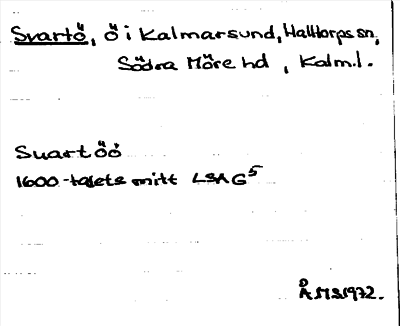 Svartö, Ö i Kalmarsund, Halltorps sn,
Södra Möre hd, Kalm.l.
Suart Öö
1600-talets mitt LSA G5
ÅMS1972.